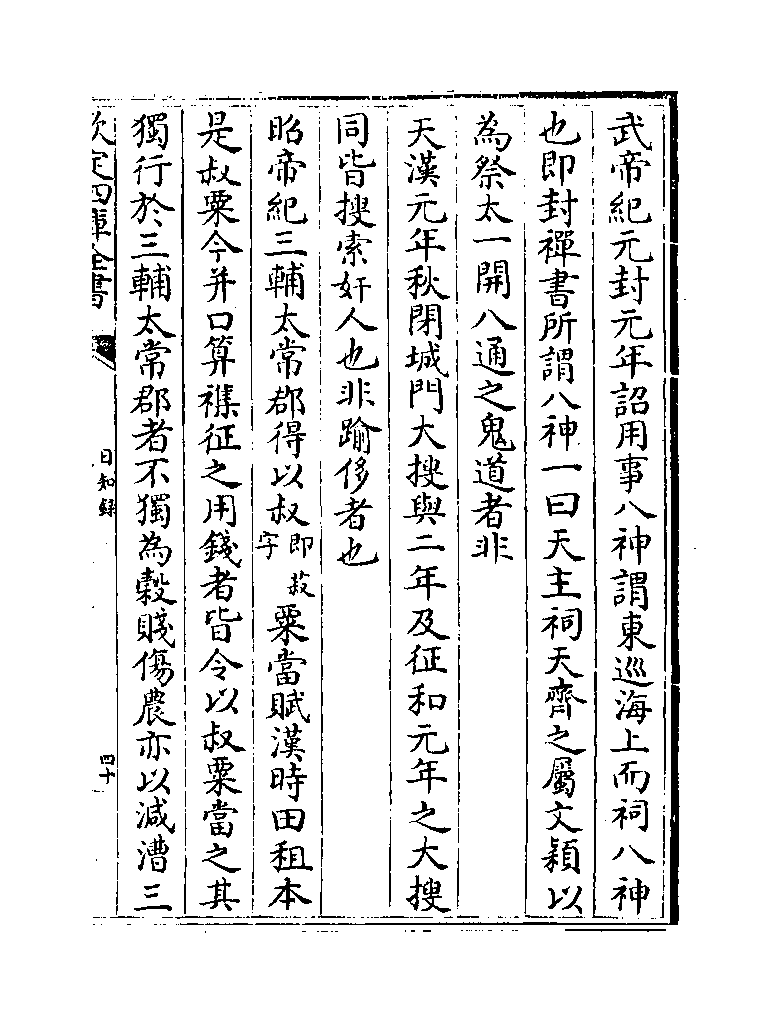 武帝紀元封元年詔用事八神謂東巡海上而祠八神
也即封禪書所謂八神一曰天主祠天齊之屬文穎以
為祭太一開八通之鬼道者非
天漢元年秋閉城門大搜與二年及征和元年之大搜
同皆搜索奸人也非踰侈者也
昭帝紀三輔太常郡得以叔即菽字粟當賦漢時田租本
是叔粟今并口算襍征之用錢者皆令以叔粟當之其
獨行於三輔太常郡者不獨為穀賤傷農亦以減漕三
欽定四庫全書
日知錄
四十